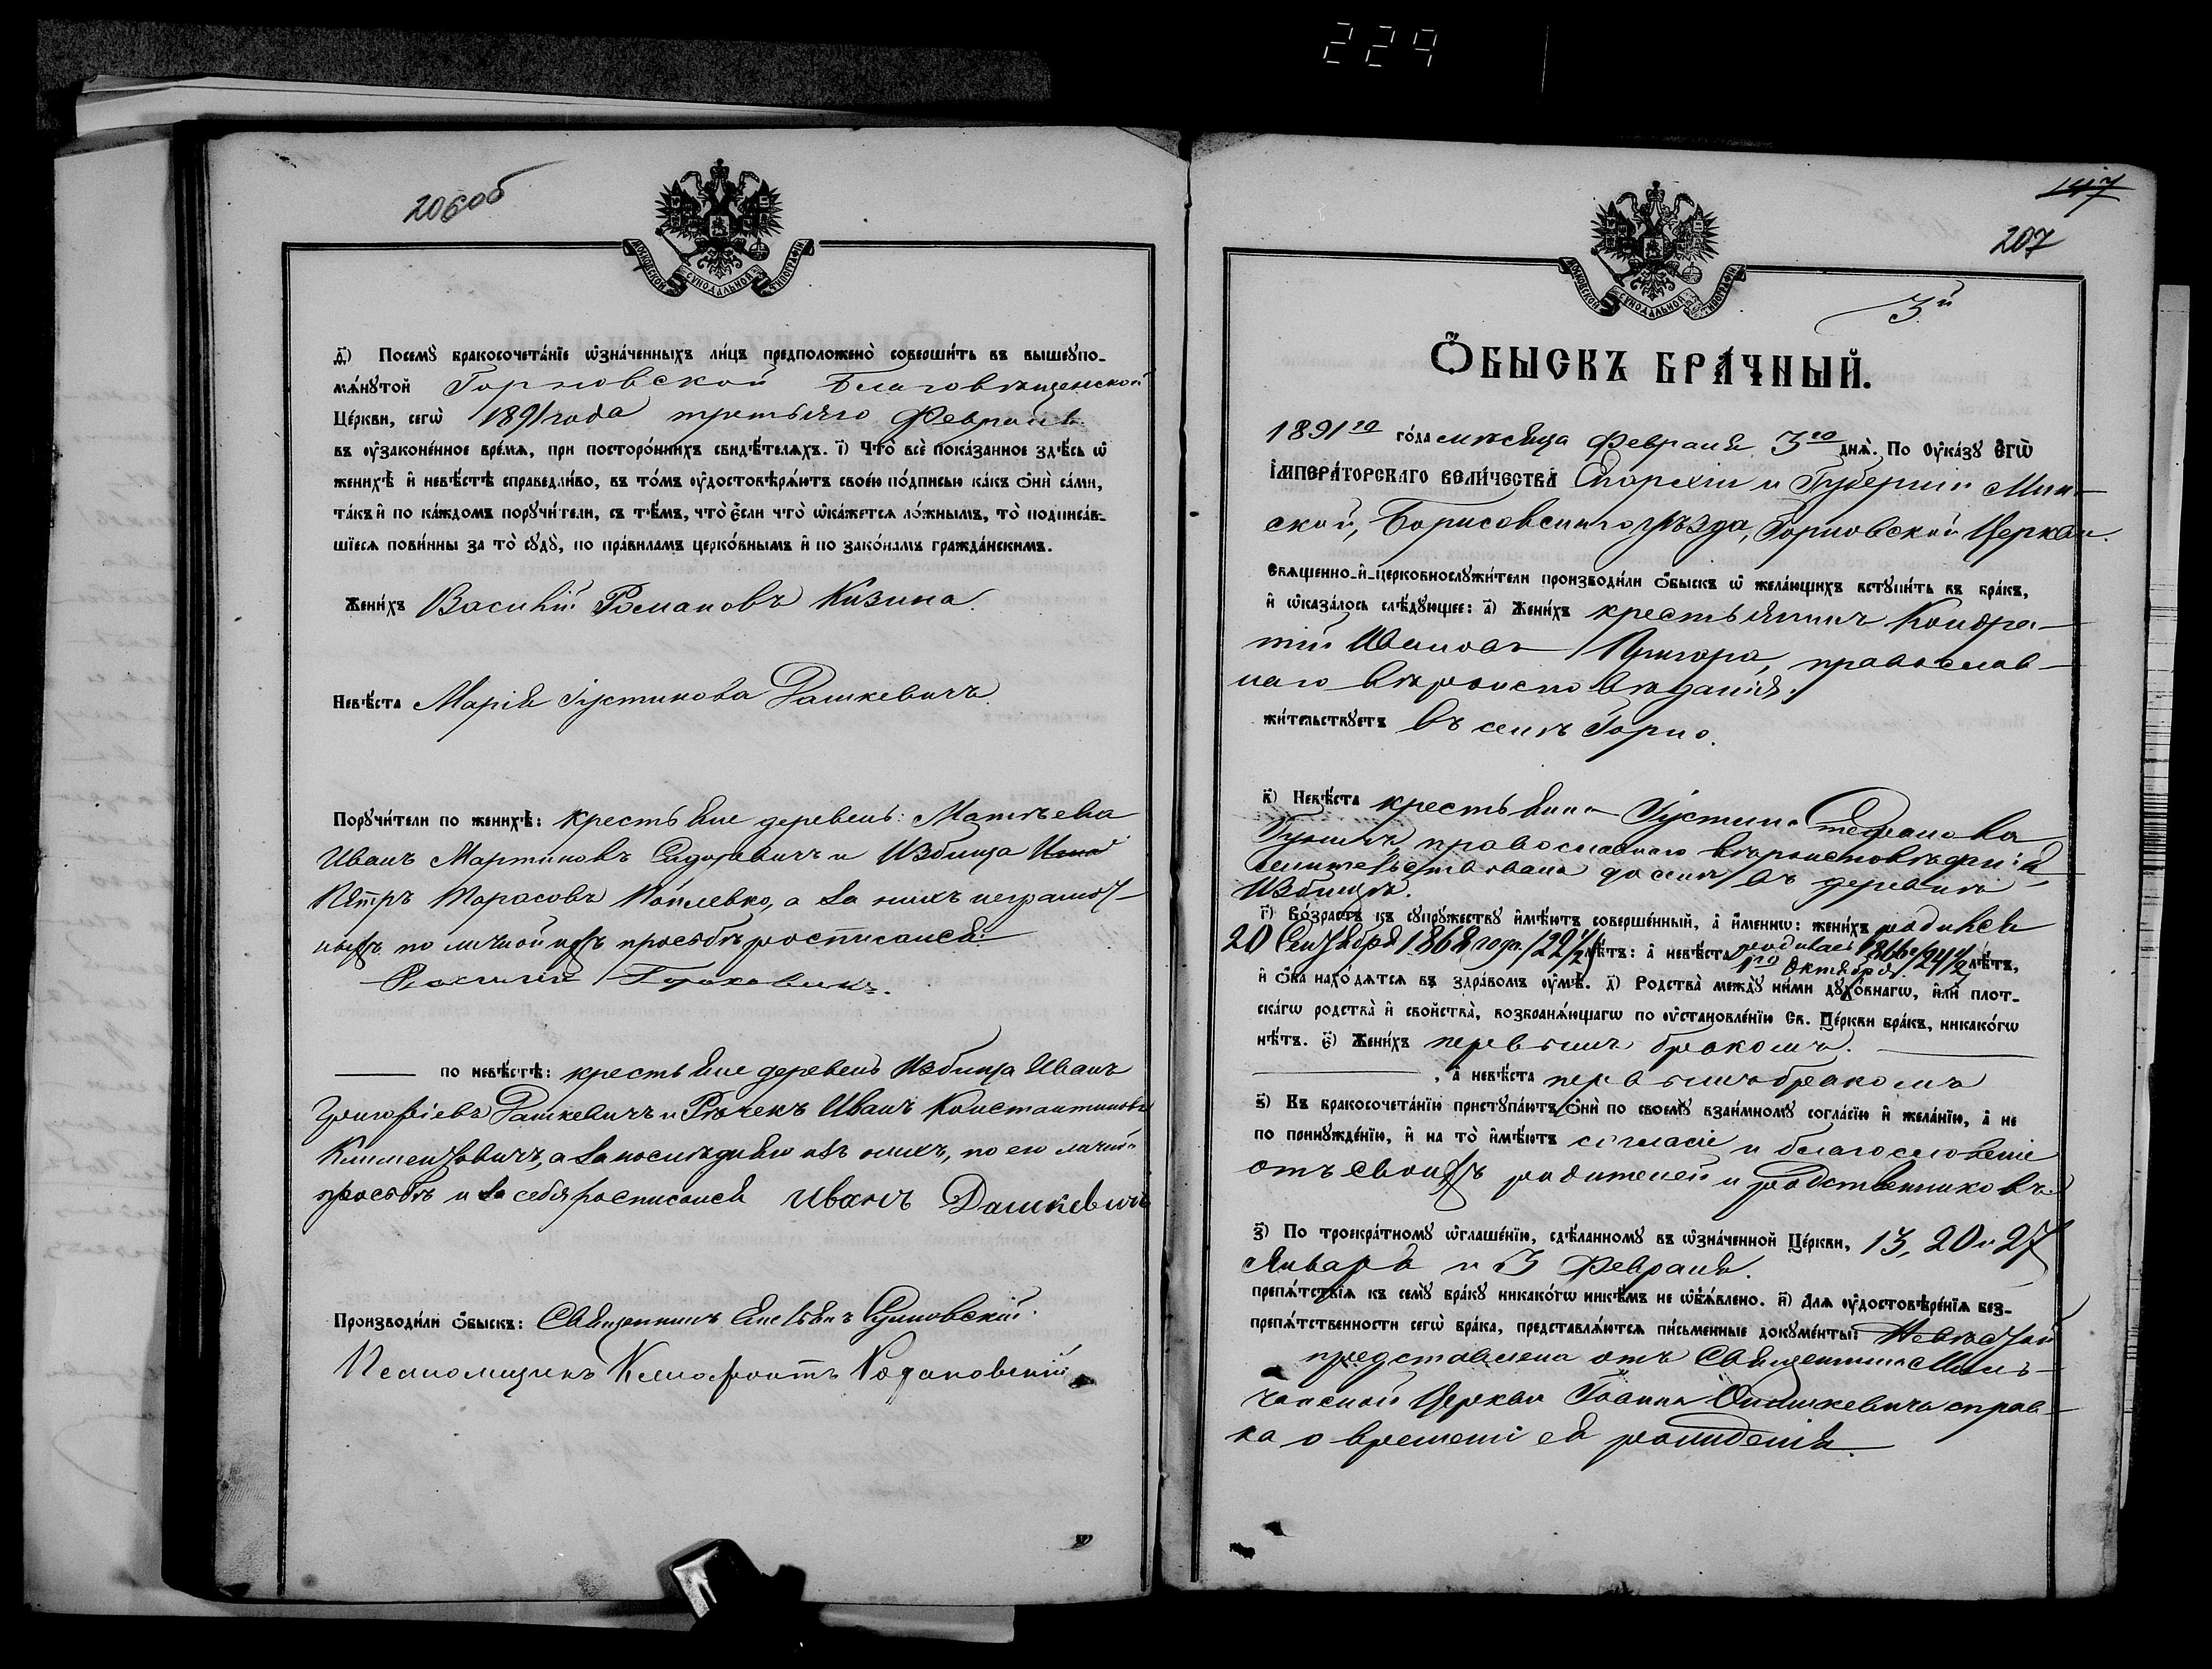 229
206об
МОСКОВСКОЙ СѴНОДАЛЬНОЙ ТИПОГРАФІИ
д҃) Посемꙋ̀ бракосочета́нїе ѡ҆зна́ченныхъ ли́цъ предположено̀ соверши́ть въ вышеꙋпо-
мѧ́нꙋтой Горновской Благовѣщенской
Це́ркви, сегѡ̀ 1891 года третьяго Февраля
въ ᲂу҆зако́ненное вре́мѧ, при посторо́ннихъ свидѣ́телѧхъ. і҃) Что̀ всѐ пока́занное здѣ́сь ѡ҆
женихѣ̀ и҆ невѣ́стѣ справедли́во, въ то́мъ ᲂу҆достовѣрѧ́ютъ свое́ю по́дписью ка́къ ѻ҆нѝ са́ми,
та́къ и҆ по ка́ждомъ порꙋчи́тели, съ тѣ́мъ, что̀ є҆́сли что̀ ѡ҆ка́жетсѧ ло́жнымъ, то̀ подписа́в-
шїесѧ пови́нны за то̀ сꙋдꙋ̀, по пра́виламъ церко́внымъ и҆ по зако́намъ гражда́нскимъ.
Жени́хъ Василій Романовъ Кизина.
Невѣ́ста Марія Іустинова Дашкевичъ.
Порꙋчи́тели по женихѣ̀: крестьяне деревень: Матвѣева
Иванъ Мартиновъ Сидоревичъ и Избища
Пётръ Тарасовъ а за нихъ неграмот-
ныхъ по личной ихъ просьбѣ росписался
по невѣ́стѣ: крестьяне деревень Избища Иванъ
Григорьевъ Дашкевичъ и Иванъ Константиновъ
Климентовичъ, а за послѣдняго изъ нихъ, по его личной
просьбѣ и за себя росписался Иванъ Дашкевичъ
Производи́ли ѻ҆́быскъ: Священникъ
Псаломщикъ
147
207
3й
МОСКОВСКОЙ СѴНОДАЛЬНОЙ ТИПОГРАФІИ
Ѻ҆́БЫСКЪ БРА́ЧНЫЙ.
1891го го́да мѣсяца Февраля 3го днѧ̀. По ᲂу҆ка́зꙋ Є҆гѡ̀
І҆МПЕРА́ТОРСКАГО ВЕЛИ́ЧЕСТВА Епархіи и Губерніи Мин-
ской, Борисовскаго уѣзда, Горновской Церкви.
Свѧще́нно-и҆-церковнослꙋжи́тели производи́ли ѻ҆́быскъ ѡ҆ жела́ющихъ встꙋпи́ть въ бра́къ,
и҆ ѡ҆каза́лось слѣ́дꙋющее: а҃) Жени́хъ крестьянинъ Кондра-
тій Ивановъ Пригора, православ-
наго вѣроисповѣданія,
жи́тельствꙋетъ въ селѣ Горно.
в҃) Невѣ́ста крестьянка Іустина Стефанова
православнаго вѣроисповѣданія
жительствовала до селѣ въ деревнѣ
Избищѣ.
г҃) Во́зрастъ къ сꙋпрꙋ́жествꙋ и҆мѣ́ютъ соверше́нный, а҆ и҆́меннѡ: жени́хъ родился
20 Сентября 1868 года /22 1/2/ лѣ́тъ: а҆ невѣ́ста родилась 1866 г.
1го Октября /24 1/2 лѣ́тъ,
и҆ ѻ҆́ба нахо́дѧтсѧ въ здра́вомъ ᲂу҆мѣ̀. д҃) Родства̀ междꙋ̀ ни́ми дꙋхо́внагѡ, и҆лѝ пло́т-
скагѡ родства̀ и҆ сво́йства, возбранѧ́ющагѡ по ᲂу҆становле́нїю Св. Це́ркви бра́къ, никако́гѡ
нѣ́тъ. є҃) Жени́хъ первымъ бракомъ.
, а҆ невѣ́ста первымъ бракомъ
ѕ҃) Къ бракосочета́нїю пристꙋпа́ютъ ѻ҆нѝ по своемꙋ̀ взаи́мномꙋ согла́сїю и҆ жела́нїю, а҆ не
по принꙋжде́нїю, и҆ на то̀ и҆мѣ́ютъ согласіе и благословеніе
отъ своихъ родителей и родственниковъ.
з҃) По троекра́тномꙋ ѡ҆глаше́нїю, сдѣ́ланномꙋ въ ѡ҆зна́ченной Це́ркви, 13, 20 и 27
Января и 3 Февраля.
препѧ́тствїѧ къ семꙋ̀ бра́кꙋ никако́гѡ никѣ́мъ не ѡ҆б̾ѧ́влено. и҃) Длѧ ᲂу҆достовѣре́нїѧ без-
препѧ́тственности сегѡ̀ бра́ка, представлѧ́ютсѧ пи́сьменные докꙋме́нты: Невѣстой
представлена отъ Священника Миль-
чанской Церкви Іоанна справ-
ка о времени ея рожденія.